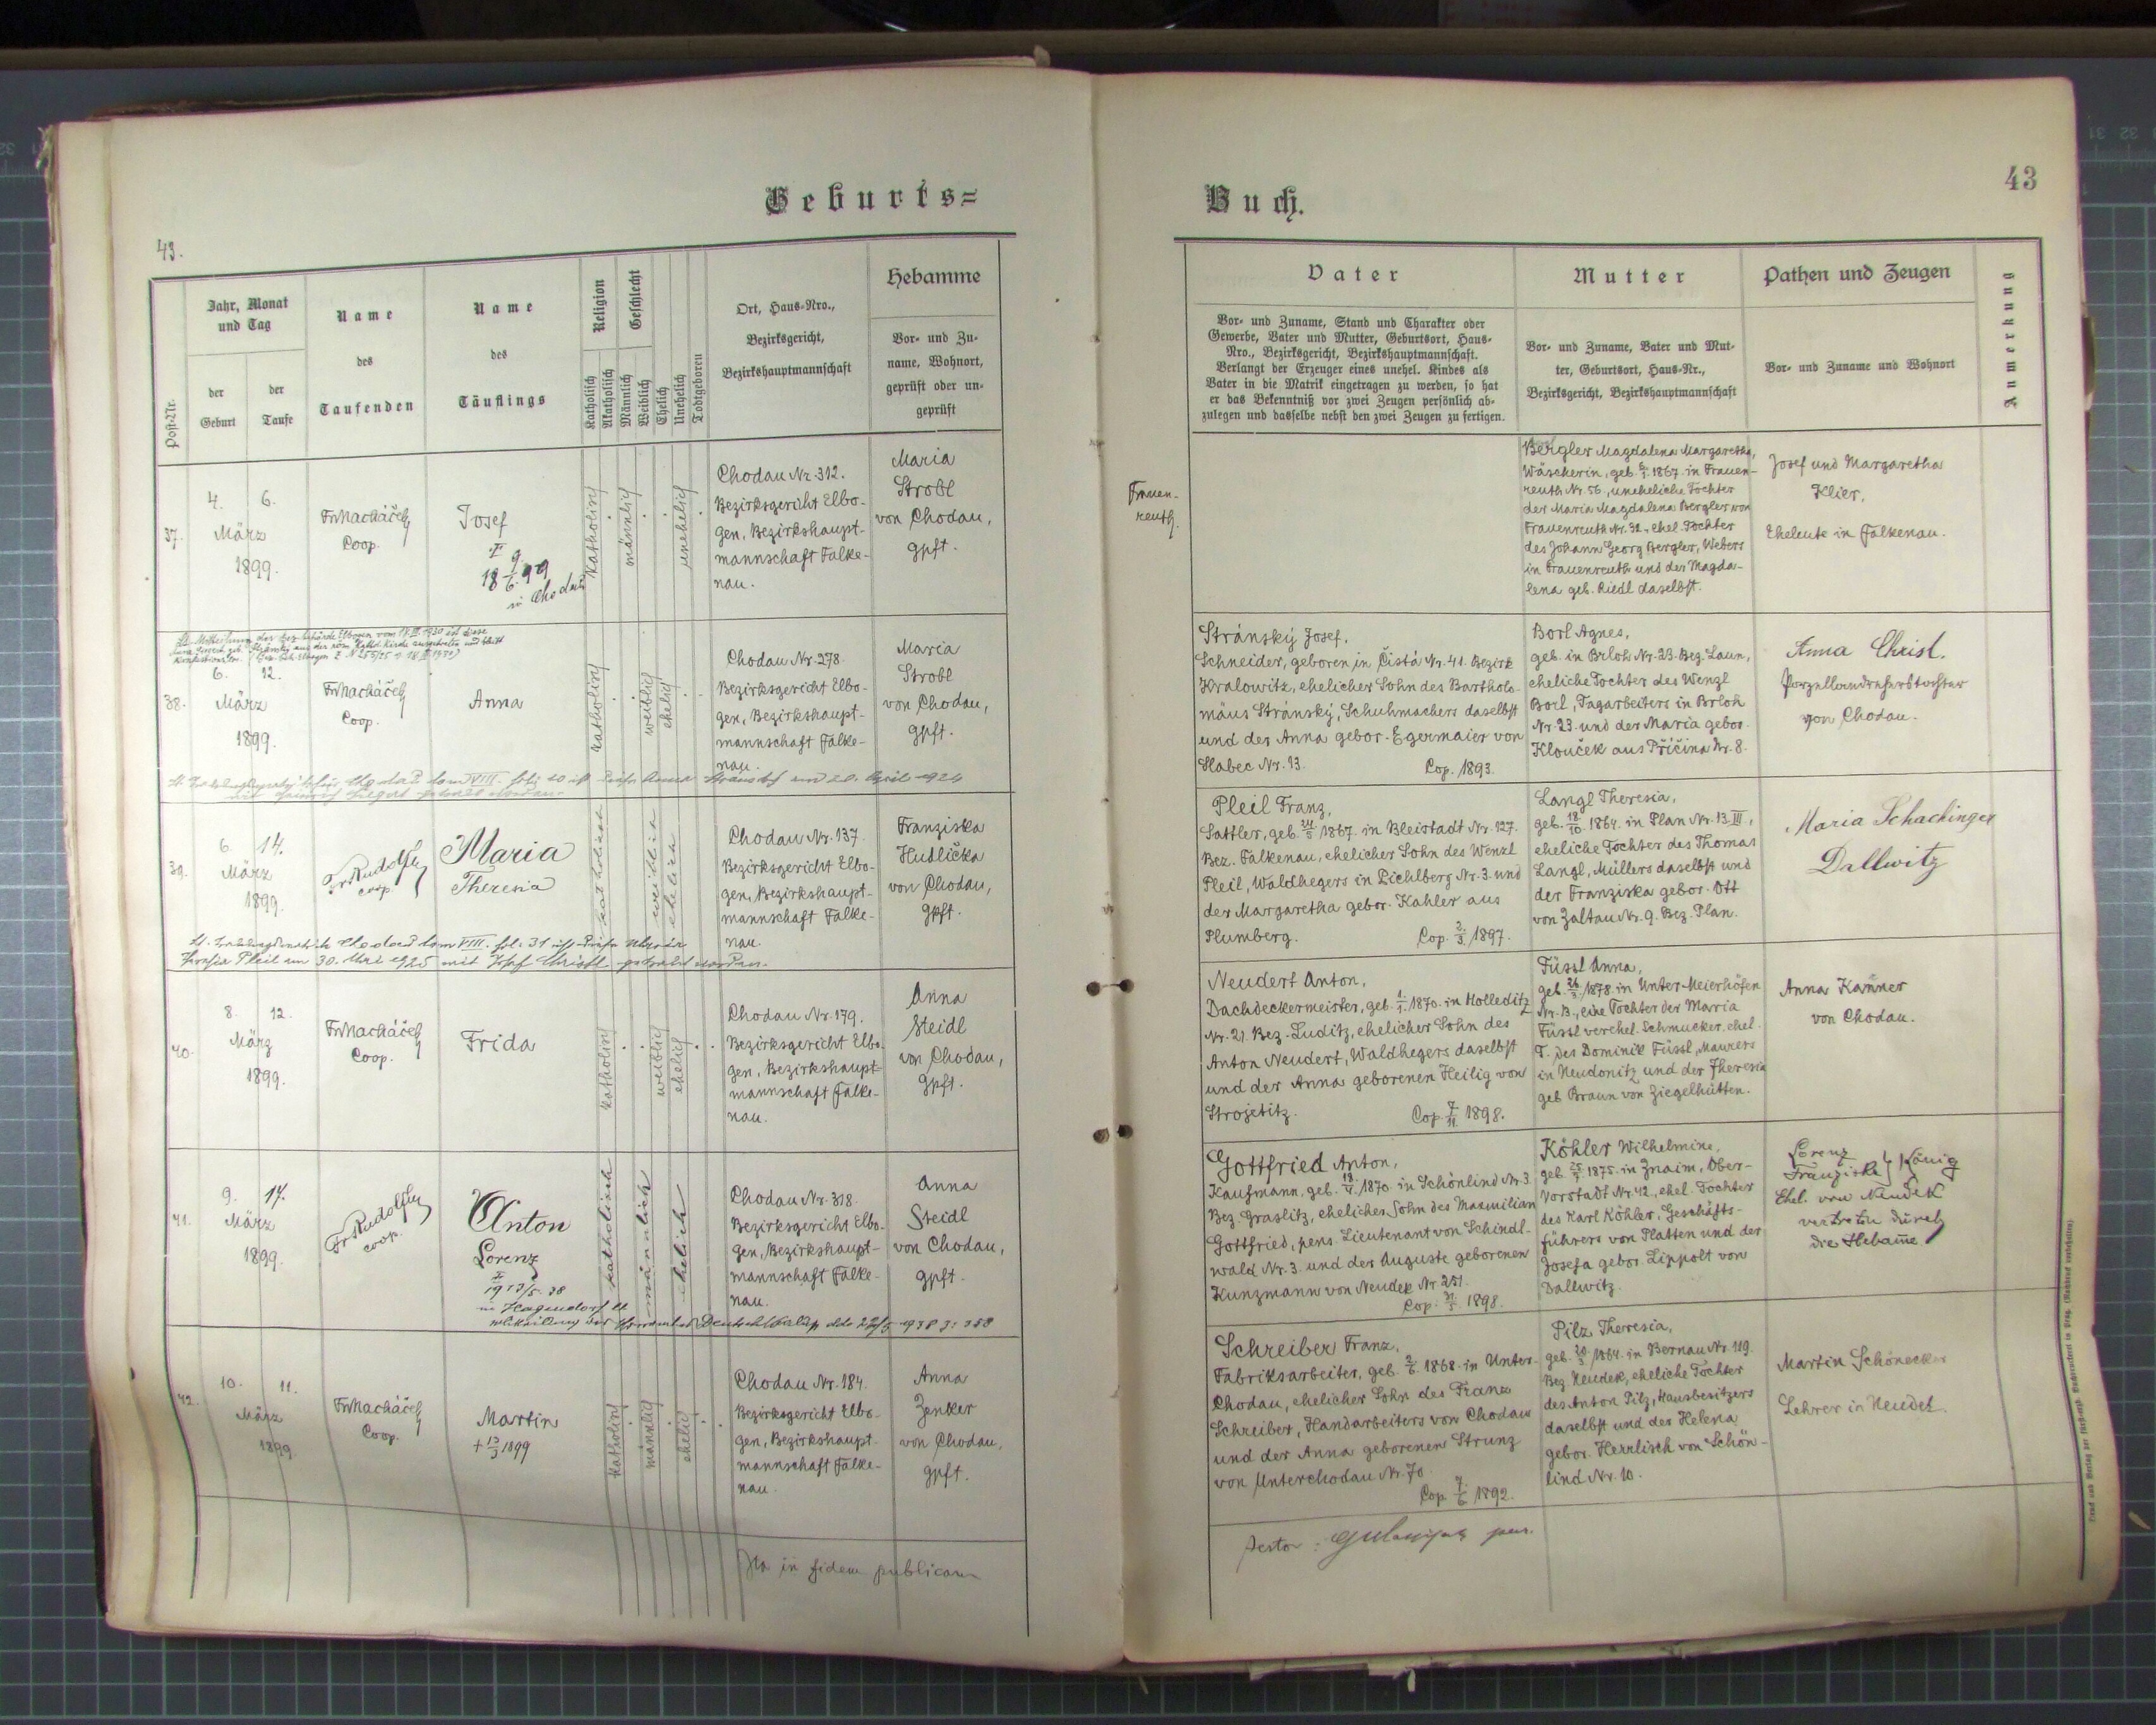 Geburts=
43.
Post-Nr.
Jahr, Monat
und Tag
der
Geburt
der
Taufe
Name
des
Taufenden
Name
des
Täuflings
Religion
Katholisch
Akatholisch
Geschlecht
Männlich
Weiblich
Ehelich
Unehelich
Todtgeboren
Ort, Haus-Nro.,
Bezirksgericht,
Bezirkshauptmannschaft
Hebamme
Vor- und Zu-
name, Wohnort,
geprüft oder un-
geprüft
37.
4. 6.
März
1899.
Fr Macháček
Coop.
Josef
18 9/6 99
in Chodau
katholisch
männlich
unehelich
Chodau Nr. 312.
Bezirksgericht Elbo-
gen, Bezirkshaupt-
mannschaft Falke-
nau.
Maria
Strobl
von Chodau,
gpft.
38.
6. 12.
März
1899.
Fr Macháček
Coop.
Anna
katholisch
weiblich
ehelich
Chodau Nr. 278.
Bezirksgericht Elbo-
gen, Bezirkshaupt-
mannschaft Falke-
nau.
Maria
Strobl
von Chodau,
gpft.
39.
6. 14.
März
1899.
Fr Rudolf
coop.
Maria
Theresia
katholisch
weiblich
ehelich
Chodau Nr. 137.
Bezirksgericht Elbo-
gen, Bezirkshaupt-
mannschaft Falke-
nau.
Franziska
Hudlička
von Chodau,
gpft.
Theresia Pleil am 30. Mai 1925 mit Josef Christl getraut worden.
40.
8. 12.
März
1899.
Fr Macháček
Coop.
Frida
katholisch
weiblich
ehelich
Chodau Nr. 179.
Bezirksgericht Elbo-
gen, Bezirkshaupt-
mannschaft Falke-
nau.
Anna
Steidl
von Chodau,
gpft.
41.
9. 17.
März
1899.
Fr Rudolf
coop.
Anton
Lorenz
katholisch
männlich
ehelich
Chodau Nr. 318.
Bezirksgericht Elbo-
gen, Bezirkshaupt-
mannschaft Falke-
nau.
Anna
Steidl
von Chodau,
gpft.
42.
10. 11.
März
1899
Fr Macháček
Coop.
Martin
+ 13/3 1899
katholisch
männlich
ehelich
Chodau Nr. 184.
Bezirksgericht Elbo-
gen, Bezirkshaupt-
mannschaft Falke-
nau.
Anna
Zenker
von Chodau,
gpft.
Ita in fidem publicam
Buch.
43
Vater
Vor- und Zuname, Stand und Charakter oder
Gewerbe, Vater und Mutter, Geburtsort, Haus-
Nro., Bezirksgericht, Bezirkshauptmannschaft.
Verlangt der Erzeuger eines unehel. Kindes als
Vater in die Matrik eingetragen zu werden, so hat
er das Bekenntniß vor zwei Zeugen persönlich ab-
zulegen und dasselbe nebst den zwei Zeugen zu fertigen.
Mutter
Vor- und Zuname, Vater und Mut-
ter, Geburtsort, Haus-Nr.,
Bezirksgericht, Bezirkshauptmannschaft
Pathen und Zeugen
Vor- und Zuname und Wohnort
Anmerkung
Frauen-
reuth.
Bergler Magdalena Margaretha,
Wäscherin, geb. 1867. in Frauen-
reuth Nr. 56, uneheliche Tochter
der Maria Magdalena Bergler von
Frauenreuth Nr. 32, ehel. Tochter
des Johann Georg Bergler, Webers
in Frauenreuth und der Magda-
lena geb. Riedl daselbst.
Josef und Margaretha
Klier,
Eheleute in Falkenau.
Stránský Josef,
Schneider, geboren in Čistá Nr. 41. Bezirk
Kralowitz, ehelicher Sohn des Bartholo-
mäus Stránský, Schuhmachers daselbst
und der Anna gebor. Egermaier von
Hlabec Nr. 13.
Cop. 1893.
Borl Agnes,
geb. in Brloh Nr. 23. Bez. Laun,
eheliche Tochter des Wenzl
Borl, Tagarbeiters in Brloh
Nr. 23. und der Maria gebor.
Klouček aus Přičina Nr. 8.
Anna Christ.
Porzellandreherstochter
von Chodau.
Pleil Franz,
Sattler, geb. 24/5 1867. in Bleistadt Nr. 127.
Bez. Falkenau, ehelicher Sohn des Wenzl
Pleil, Waldhegers in Pichlberg Nr. 3. und
der Margaretha gebor. Kahler aus
Plumberg.
Cop. 2/3. 1897.
Langl Theresia,
geb. 18/10. 1864. in Plan Nr. 13 III,
eheliche Tochter des Thomas
Langl, Müllers daselbst und
der Franziska gebor. Ott
von Zaltau Nr. 9. Bez. Plan.
Maria Schachinger
Dallwitz
Neudert Anton,
Dachdeckermeister, geb. 1/1. 1870. in Holleditz
Nr. 21. Bez. Luditz, ehelicher Sohn des
Anton Neudert, Waldhegers daselbst
und der Anna geborenen Heilig von
Strojetitz.
Cop. 7/11. 1898.
Füssl Anna,
geb. 26/3. 1878. in Unter-Meierhöfen
Nr. 13., eine Tochter der Maria
Füssl verehel. Schmucker, ehel.
T. des Dominik Füssl, Maurers
in Neudonitz und der Theresia
geb. Braun von Ziegelhütten.
Anna Kanner
von Chodau.
Gottfried Anton,
Kaufmann, geb. 1870. in Schönlind Nr. 3.
Bez. Graslitz, ehelicher Sohn des Maximilian
Gottfried, pens. Lieutenant von Schindl-
wald Nr. 3. und der Auguste geborenen
Kunzmann von Neudek Nr. 251.
Cop. 1898.
Köhler Wilhelmine,
geb. 1875. in Znaim, Ober-
vorstadt Nr. 42., ehel. Tochter
des Karl Köhler, Geschäfts-
führers von Platten und der
Josefa gebor. Lippolt von
Dallwitz.
Lorenz
Franziska } König
Ehel. von Neudek
vertreten durch
die Hebame
Schreiber Franz,
Fabriksarbeiter, geb. 1868. in Unter-
Chodau, ehelicher Sohn des Franz
Schreiber, Handarbeiters von Chodau
und der Anna geborenen Strunz
von Unterchodau Nr. 70.
Cop. 7/6. 1892.
Pilz Theresia,
geb. 20/3. 1864. in Bernau Nr. 119.
Bez. Neudek, eheliche Tochter
des Anton Pilz, Hausbesitzers
daselbst und der Helena
gebor. Herrlisch von Schön-
lind Nr. 10.
Martin Schönecker
Lehrer in Neudek.